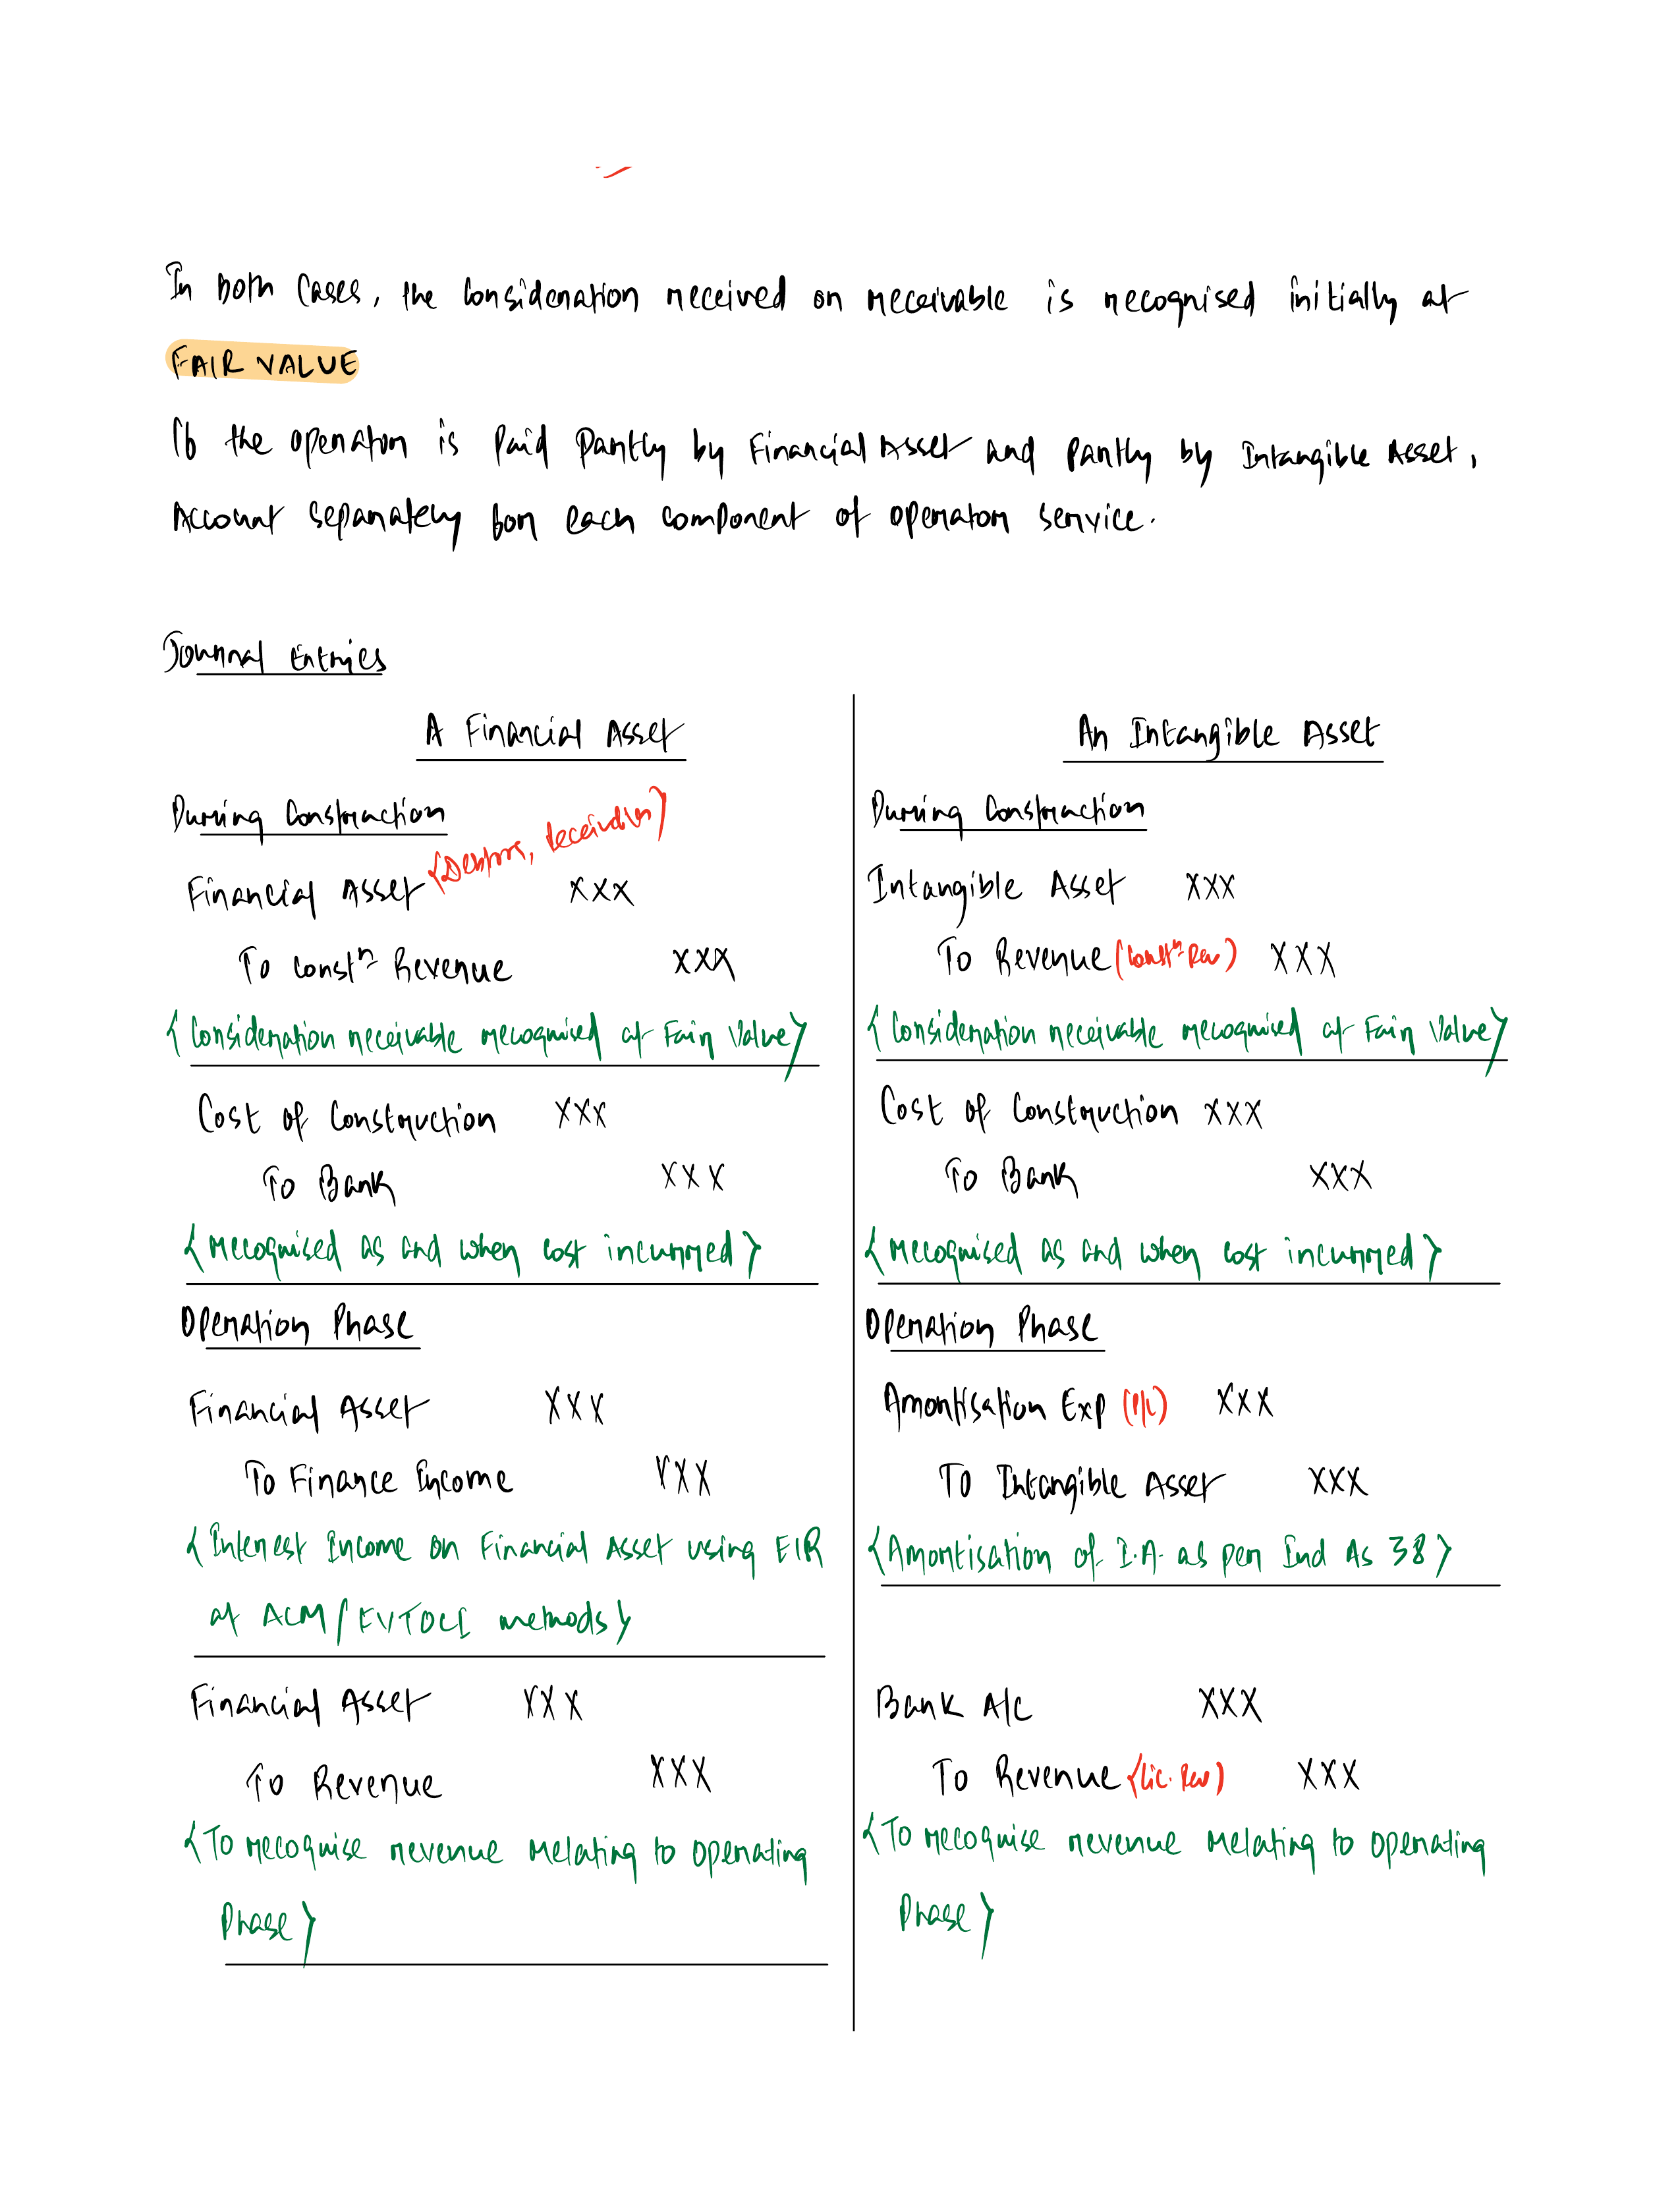 In both Cases, the Consideration received or receivable is recognised initially at
FAIR VALUE
If the operator is Paid Partly by Financial Asset and Partly by Intangible Asset,
Account separately for each component of operator service.
Journal Entries
A Financial Asset
During Construction
{Debtors, Receivables}
Financial Asset XXX
To constn Revenue XXX
{Consideration receivable recognised at Fair Value}
Cost of Construction XXX
To Bank XXX
{recognised as and when cost incurred}
Operation Phase
Financial Asset XXX
To Finance Income XXX
{Interest Income on Financial Asset using EIR
at ACM/FVTOCI methods}
Financial Asset XXX
To Revenue XXX
{To recognise revenue relating to operating
Phase}
An Intangible Asset
During Construction
Intangible Asset XXX
To Revenue (Constn Rev) XXX
{Consideration receivable recognised at Fair Value}
Cost of Construction XXX
To Bank XXX
{recognised as and when cost incurred}
Operation Phase
Amortisation Exp (P/L) XXX
To Intangible Asset XXX
{Amortisation of I.A. as per Ind As 38}
Bank A/C XXX
To Revenue {Lic. Rev} XXX
{To recognise revenue relating to operating
Phase}